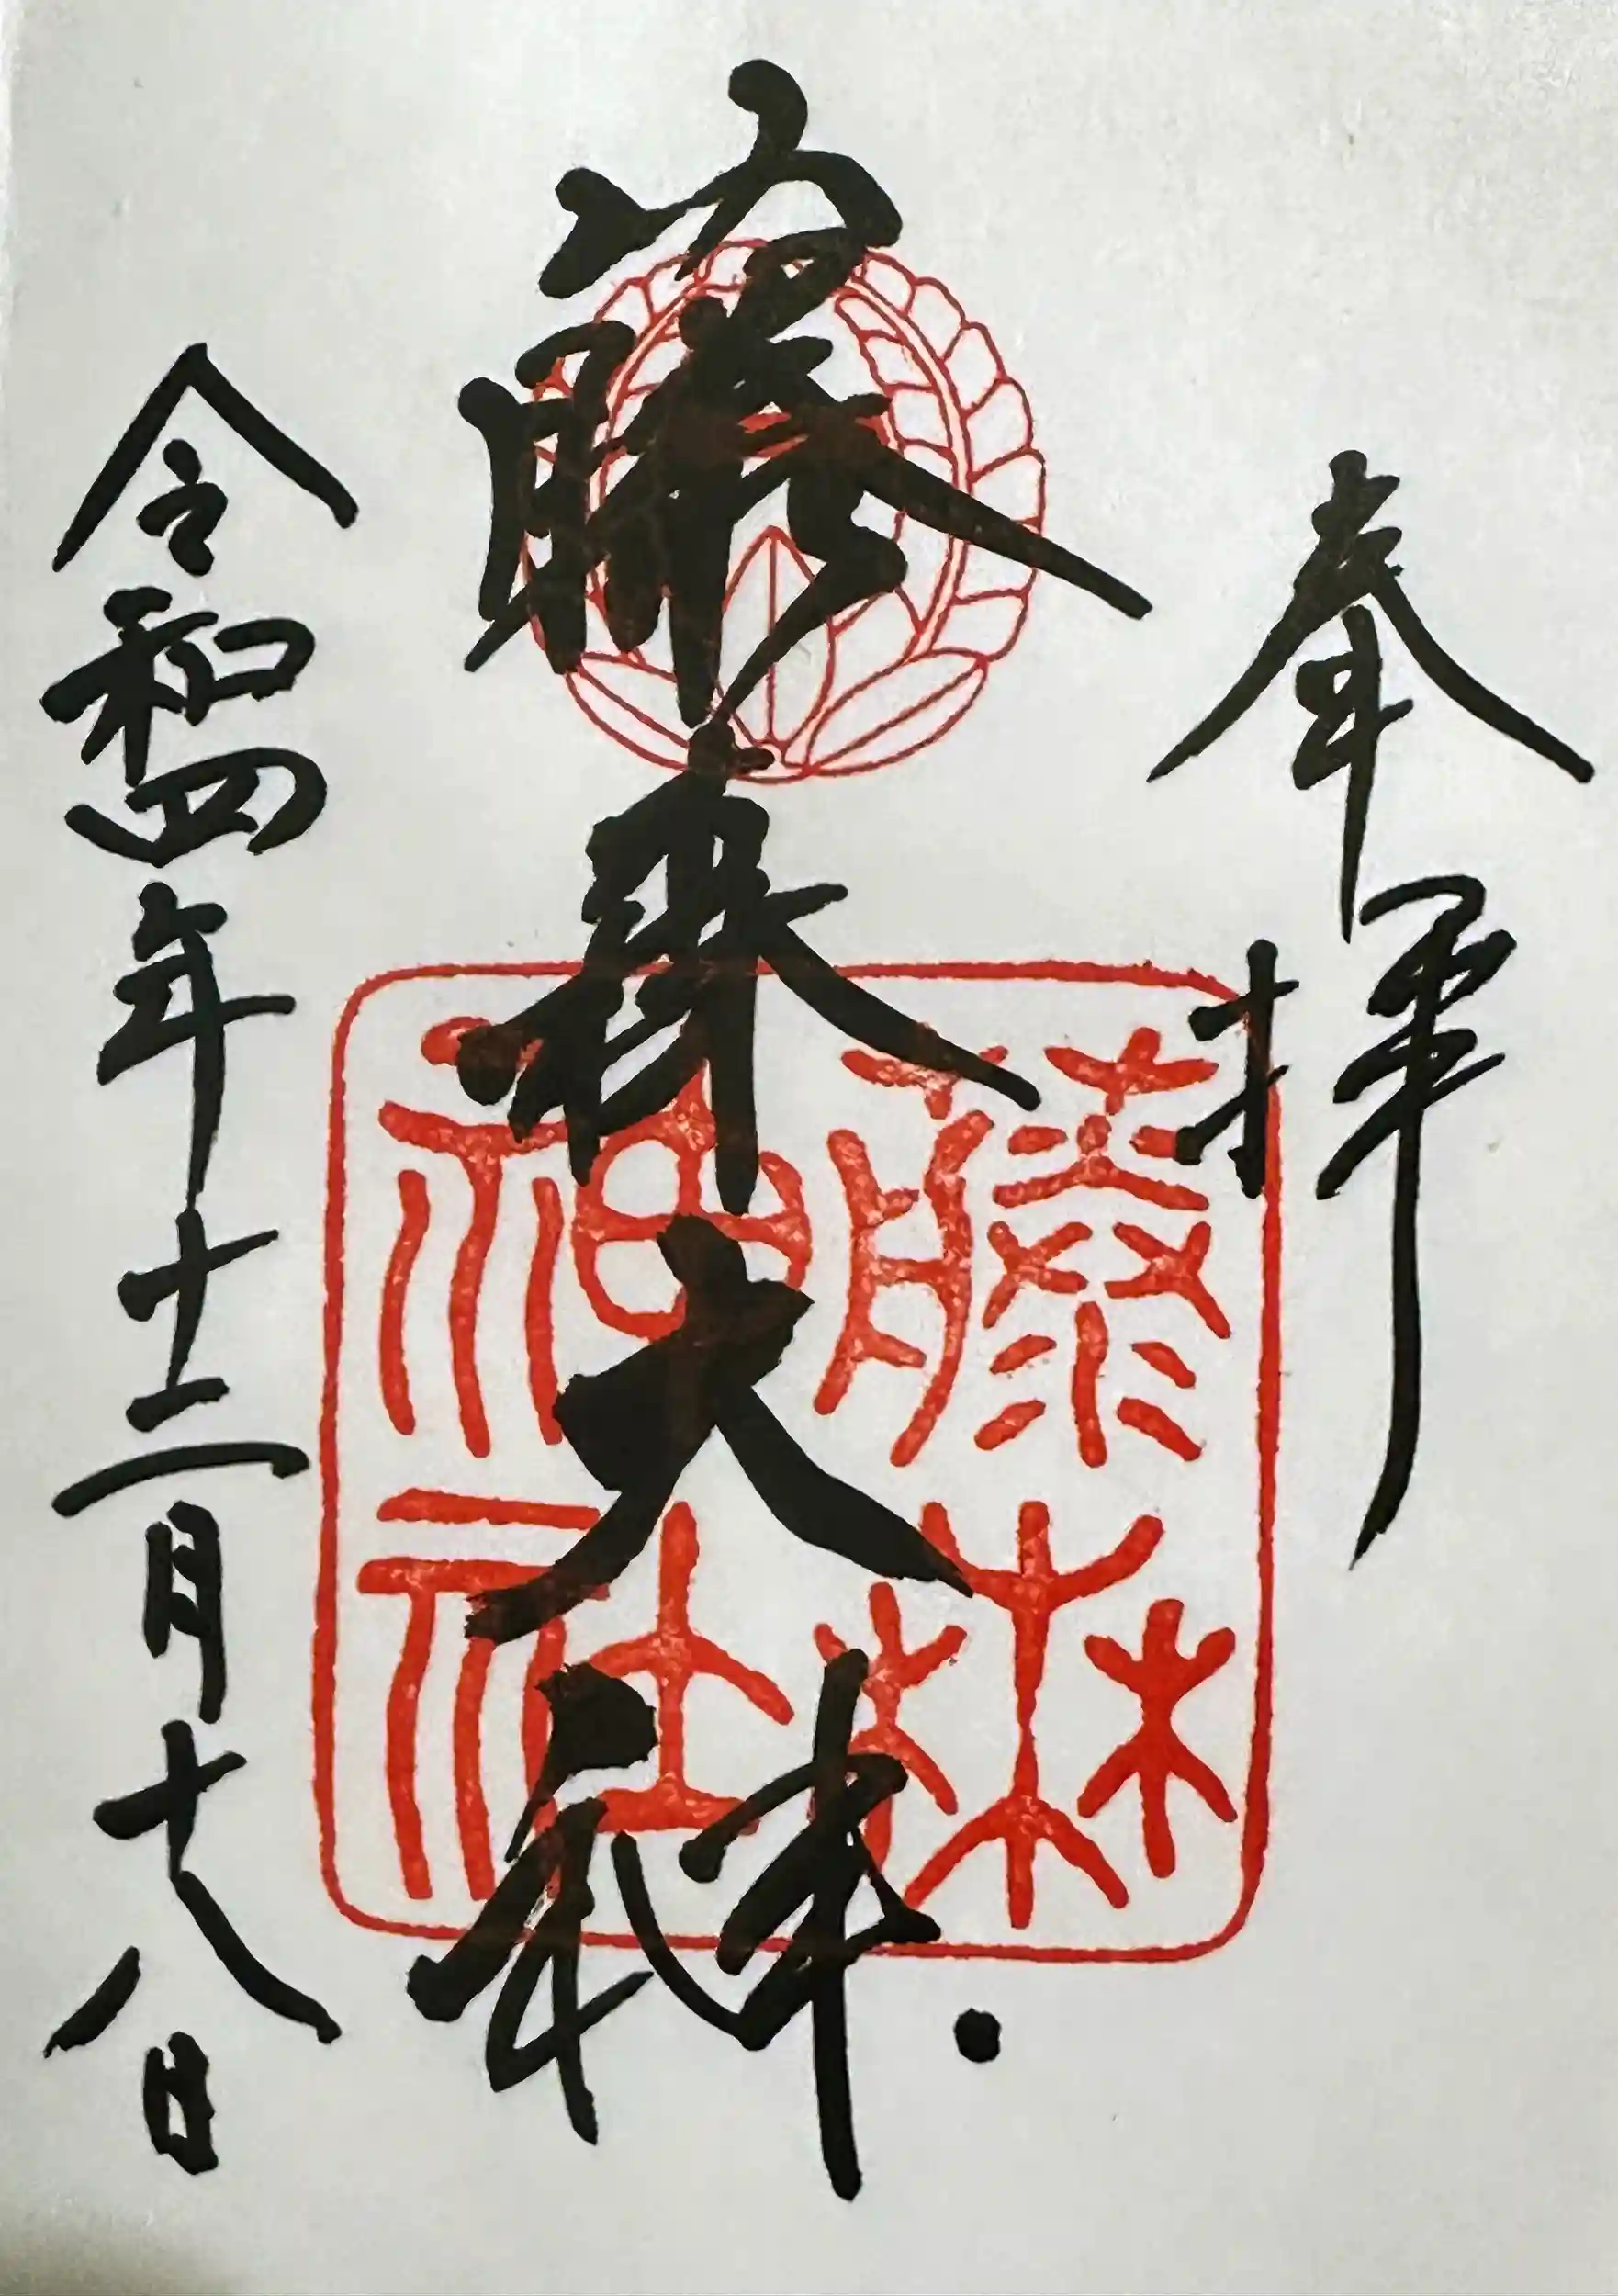 奉拝
藤森大神
藤森神社
令和四年十二月十八日